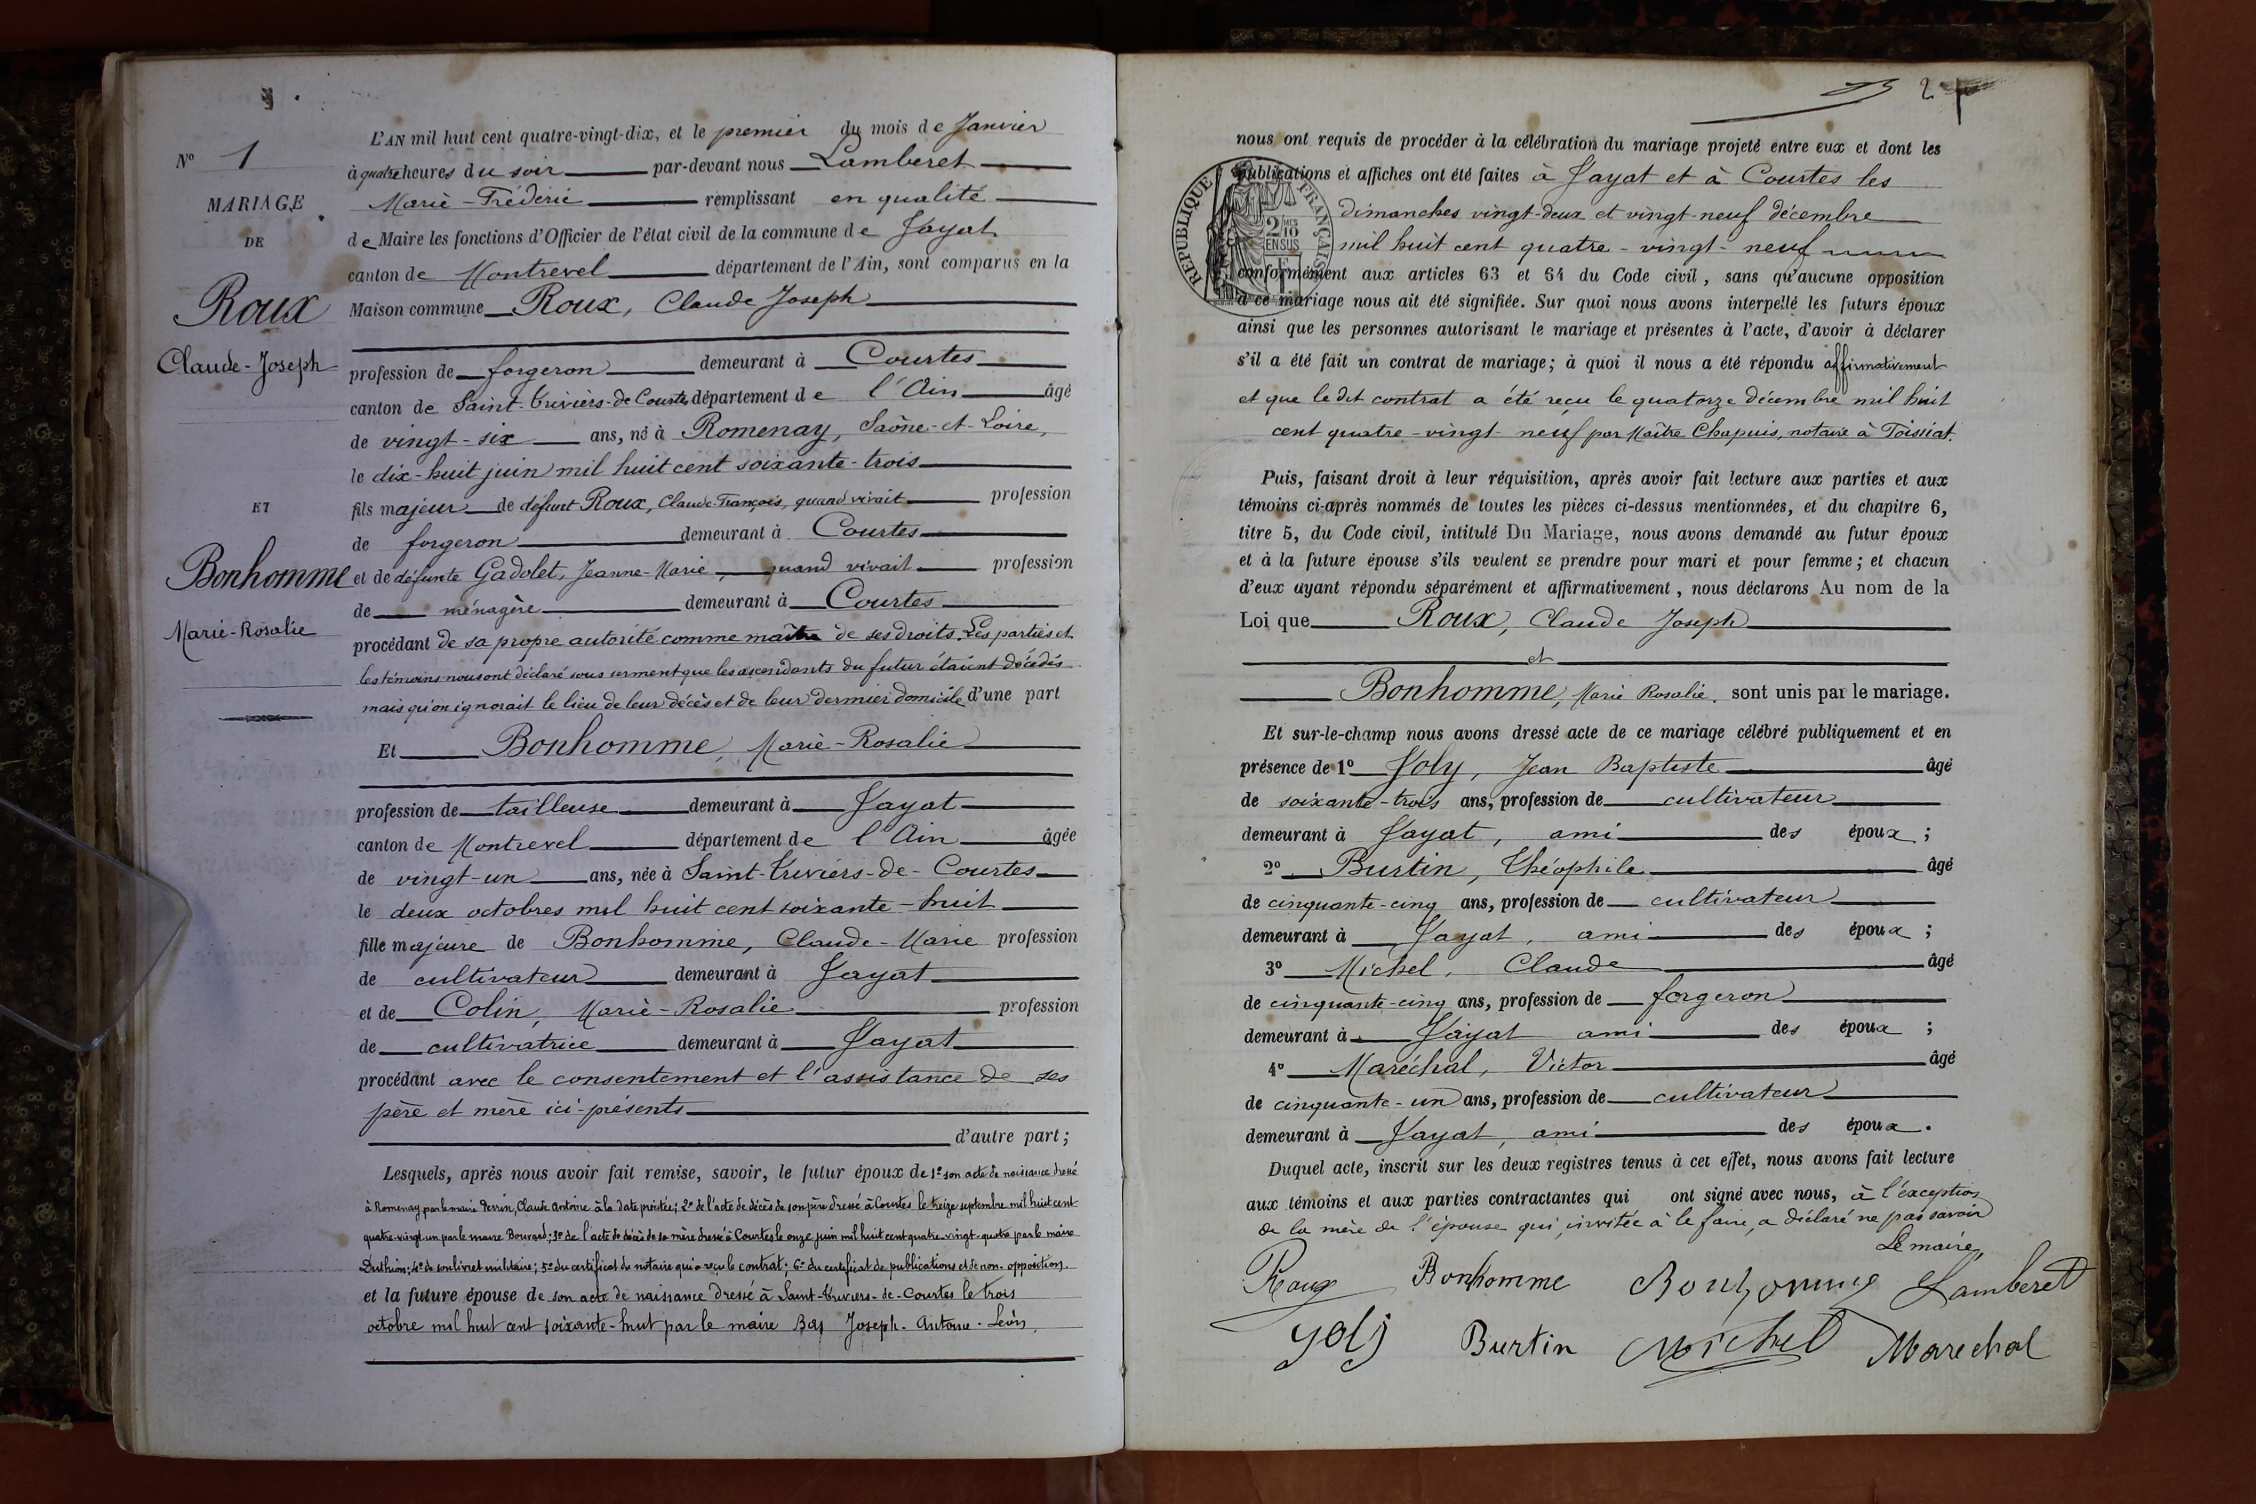 N° 1
MARIAGE
DE
Roux
Claude-Joseph
ET
Bonhomme
Marie-Rosalie
L'AN mil huit cent quatre-vingt-dix, et le premier du mois de Janvier
à quatre heures du soir par-devant nous Lamberet
Marie-Frédéric remplissant en qualité
de Maire les fonctions d'Officier de l'état civil de la commune de Jayat
canton de Montrevel département de l'Ain, sont comparus en la
Maison commune Roux, Claude Joseph
profession de forgeron demeurant à Courtes
canton de Saint-Triviers-de-Courtes département de l'Ain âgé
de vingt-six ans, né à Romenay, Saône-et-Loire,
le dix-huit juin mil huit cent soixante-trois
fils majeur de défunt Roux, Claude-François, quand vivait profession
de forgeron demeurant à Courtes
et de défunte Gadolet, Jeanne-Marie, quand vivait profession
de ménagère demeurant à Courtes
procédant de sa propre autorité comme maître de ses droits. Les parties et
les témoins nous ont déclaré sous serment que les ascendants du futur étaient décédés
mais qu'on ignorait le lieu de leur décès et de leur dernier domicile d'une part
Et Bonhomme, Marie-Rosalie
profession de tailleuse demeurant à Jayat
canton de Montrevel département de l'Ain âgée
de vingt-un ans, née à Saint-Triviers-de-Courtes
le deux octobres mil huit cent soixante-huit
fille majeure de Bonhomme, Claude-Marie profession
de cultivateur demeurant à Jayat
et de Colin, Marie-Rosalie profession
de cultivatrice demeurant à Jayat
procédant avec le consentement et l'assistance de ses
père et mère ici-présents
d'autre part;
Lesquels, après nous avoir fait remise, savoir, le futur époux de 1° son acte de naissance dressé
à Romenay par le maire Perrin, Claude Antoine à la date précitée; 2° de l'acte de décès de son père dressé à Courtes le treize septembre mil huit cent
quatre-vingt-un par le maire Bouvard; 3° de l'acte de décès de sa mère dressé à Courtes le onze juin mil huit cent quatre-vingt-quatre par le maire
4° de son livret militaire; 5° du certificat du notaire qui a reçu le contrat; 6° du certificat de publications et de non-opposition.
et la future épouse de son acte de naissance dressé à Saint-Triviers-de-Courtes le trois
octobre mil huit cent soixante-huit par le maire Bas Joseph-Antoine-Léon.
2
nous ont requis de procéder à la célébration du mariage projeté entre eux et dont les
publications et affiches ont été faites à Jayat et à Courtes les
dimanches vingt-deux et vingt-neuf décembre
mil huit cent quatre-vingt-neuf
RÉPUBLIQUE FRANÇAISE
2/10 EN SUS
conformément aux articles 63 et 64 du Code civil, sans qu'aucune opposition
à ce mariage nous ait été signifiée. Sur quoi nous avons interpellé les futurs époux
ainsi que les personnes autorisant le mariage et présentes à l'acte, d'avoir à déclarer
s'il a été fait un contrat de mariage; à quoi il nous a été répondu affirmativement
et que le dit contrat a été reçu le quatorze décembre mil huit
cent quatre-vingt-neuf par Maître Chapuis, notaire à Foissiat.
Puis, faisant droit à leur réquisition, après avoir fait lecture aux parties et aux
témoins ci-après nommés de toutes les pièces ci-dessus mentionnées, et du chapitre 6,
titre 5, du Code civil, intitulé Du Mariage, nous avons demandé au futur époux
et à la future épouse s'ils veulent se prendre pour mari et pour femme; et chacun
d'eux ayant répondu séparément et affirmativement, nous déclarons Au nom de la
Loi que Roux, Claude Joseph
et
Bonhomme, Marie Rosalie. sont unis par le mariage.
Et sur-le-champ nous avons dressé acte de ce mariage célébré publiquement et en
présence de 1° Joly, Jean Baptiste âgé
de soixante-trois ans, profession de cultivateur
demeurant à Jayat, ami des époux;
2° Burtin, Théophile âgé
de cinquante-cinq ans, profession de cultivateur
demeurant à Jayat, ami des époux;
3° Michel, Claude âgé
de cinquante-cinq ans, profession de forgeron
demeurant à Jayat ami des époux;
4° Maréchal, Victor âgé
de cinquante-un ans, profession de cultivateur
demeurant à Jayat, ami des époux.
Duquel acte, inscrit sur les deux registres tenus à cet effet, nous avons fait lecture
aux témoins et aux parties contractantes qui ont signé avec nous, à l'exception
de la mère de l'épouse qui, invitée à le faire, a déclaré ne pas savoir
Le maire,
Roux Bonhomme Bonhomme Lamberet
Joly Burtin Michel Marechal